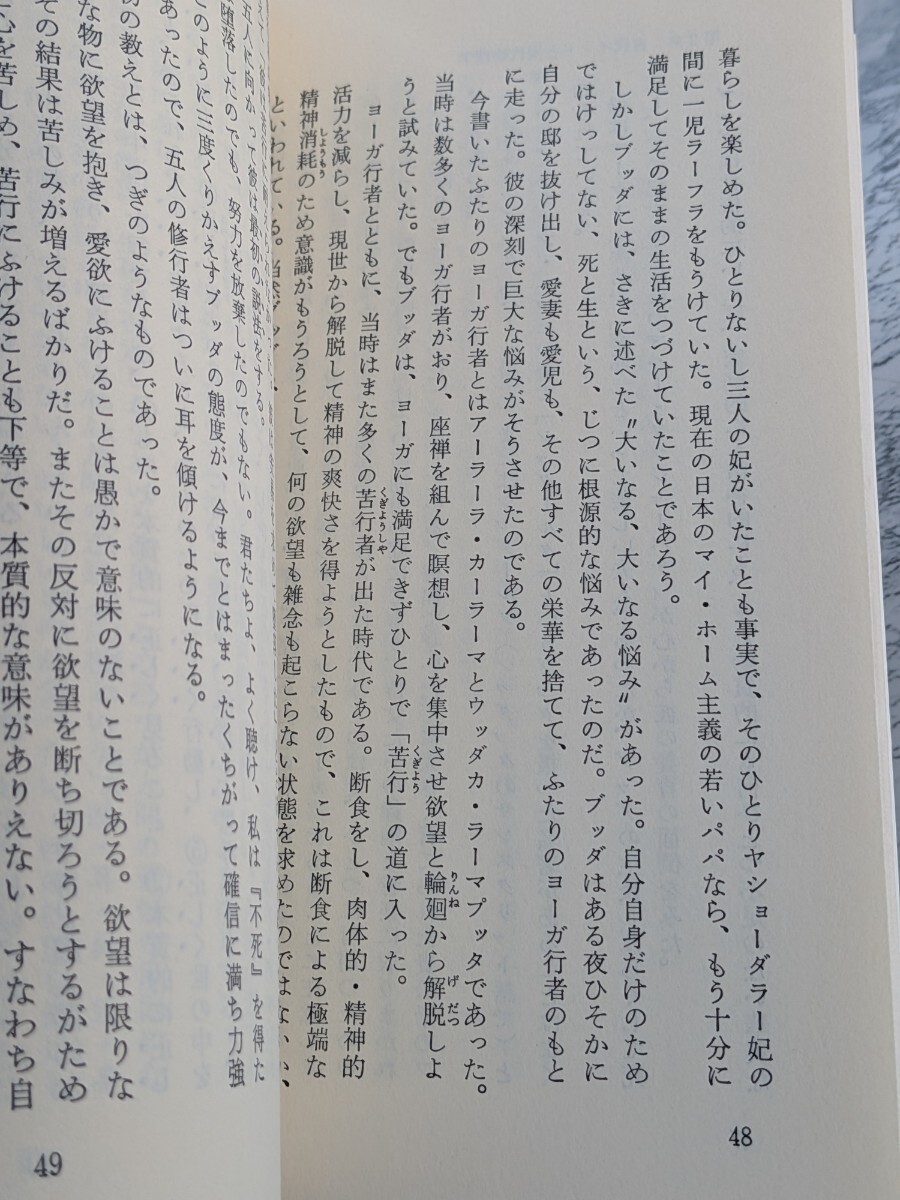 暮らしを楽しめた。ひとりないし三人の妃がいたことも事実で、そのひとりヤショーダラー妃の
間に一児ラーフラをもうけていた。現在の日本のマイ・ホーム主義の若いパパなら、もう十分に
満足してそのままの生活をつづけていたことであろう。
しかしブッダには、さきに述べた〝大いなる、大いなる悩み〟があった。自分自身だけのため
ではけっしてない、死と生という、じつに根源的な悩みであったのだ。ブッダはある夜ひそかに
自分の邸を抜け出し、愛妻も愛児も、その他すべての栄華を捨てて、ふたりのヨーガ行者のもと
に走った。彼の深刻で巨大な悩みがそうさせたのである。
今書いたふたりのヨーガ行者とはアーラーラ・カーラーマとウッダカ・ラーマプッタであった。
当時は数多くのヨーガ行者がおり、座禅を組んで瞑想し、心を集中させ欲望と輪廻から解脱しよ
うと試みていた。でもブッダは、ヨーガにも満足できずひとりで「苦行」の道に入った。
ヨーガ行者とともに、当時はまた多くの苦行者が出た時代である。断食をし、肉体的・精神的
活力を減らし、現世から解脱して精神の爽快さを得ようとしたもので、これは断食による極端な
精神消耗のため意識がもうろうとして、何の欲望も雑念も起こらない状態を求めたのではないか、
といわれている。当然ブッ
48
五人に向かって彼は最初の説法をする。
堕落したのでも、努力を放棄したのでもない。君たちよ、よく聴け、私は『不死』を得た
このように三度くりかえすブッダの態度が、今までとはまったくちがって確信に満ち力強
あったので、五人の修行者はついに耳を傾けるようになる。
初の教えとは、つぎのようなものであった。
な物に欲望を抱き、愛欲にふけることは愚かで意味のないことである。欲望は限りな
その結果は苦しみが増えるばかりだ。またその反対に欲望を断ち切ろうとするがため
心を苦しめ、苦行にふけることも下等で、本質的な意味がありえない。すなわち自
49